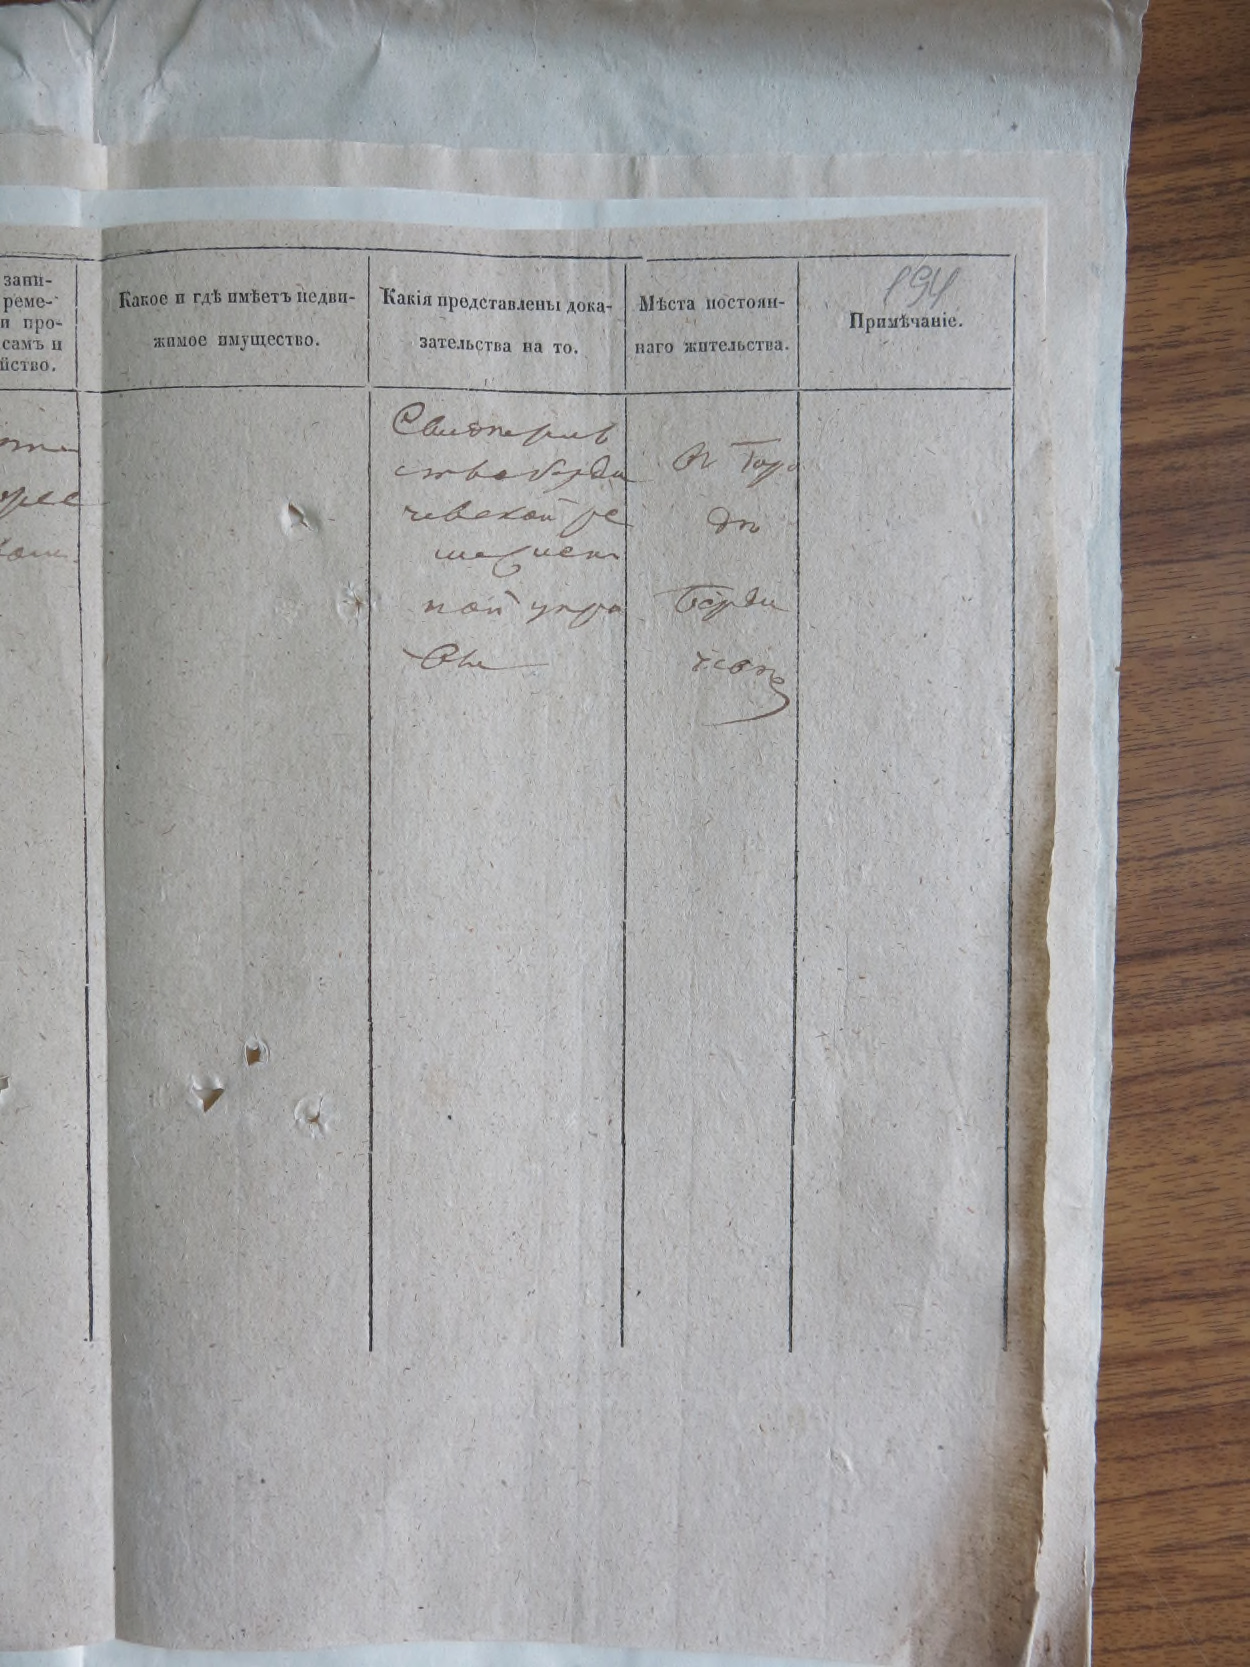 194
запи-
реме-
и про-
самъ и
йство.
Какое и гдѣ имѣетъ недви-
жимое имущество.
Какія представлены дока-
зательства на то.
Мѣста постоян-
наго жительства.
Примѣчаніе.
Свидѣтель
ство Берди
чевской ре
месчен
ной упра
вы
въ Горо
дѣ
Берди
чевѣ